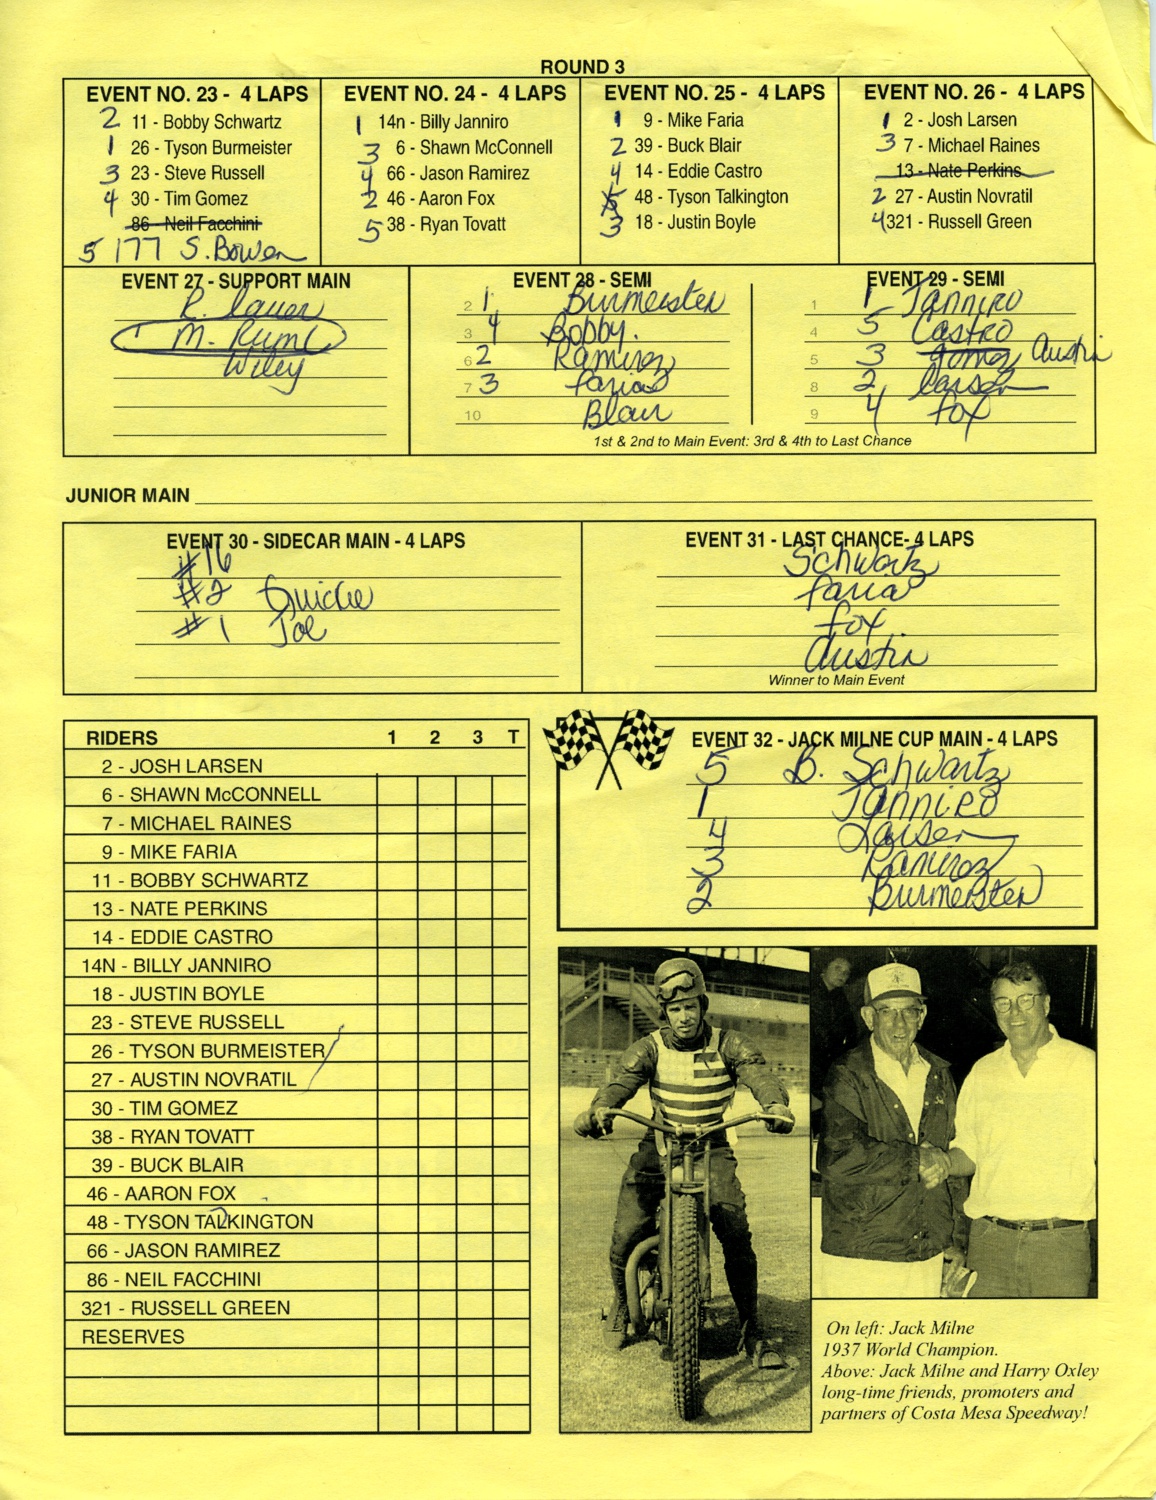 ROUND 3
EVENT NO. 23 - 4 LAPS
2 11 - Bobby Schwartz
1 26 - Tyson Burmeister
3 23 - Steve Russell
4 30 - Tim Gomez
86 - Neil Facchini
5 177 S. Bowen
EVENT NO. 24 - 4 LAPS
1 14n - Billy Janniro
3 6 - Shawn McConnell
4 66 - Jason Ramirez
2 46 - Aaron Fox
5 38 - Ryan Tovatt
EVENT NO. 25 - 4 LAPS
1 9 - Mike Faria
2 39 - Buck Blair
4 14 - Eddie Castro
48 - Tyson Talkington
3 18 - Justin Boyle
EVENT NO. 26 - 4 LAPS
1 2 - Josh Larsen
3 7 - Michael Raines
13 - Nate Perkins
2 27 - Austin Novratil
4 321 - Russell Green
EVENT 27 - SUPPORT MAIN
R. Lauer
1 M. Ruml
Wiley
EVENT 28 - SEMI
2 1 Burmeister
3 4 Bobby.
6 2 Ramirez
7 3 Faria
10 Blair
EVENT 29 - SEMI
1 1 Janniro
4 5 Castro
5 3 Gomez Austin
8 2 Larsen
9 4 Fox
1st & 2nd to Main Event: 3rd & 4th to Last Chance
JUNIOR MAIN
EVENT 30 - SIDECAR MAIN - 4 LAPS
#16
#2 Quickie
#1 Joe
EVENT 31 - LAST CHANCE- 4 LAPS
Schwartz
Faria
Fox
Austin
Winner to Main Event
RIDERS 1 2 3 T
2 - JOSH LARSEN
6 - SHAWN McCONNELL
7 - MICHAEL RAINES
9 - MIKE FARIA
11 - BOBBY SCHWARTZ
13 - NATE PERKINS
14 - EDDIE CASTRO
14N - BILLY JANNIRO
18 - JUSTIN BOYLE
23 - STEVE RUSSELL
26 - TYSON BURMEISTER
27 - AUSTIN NOVRATIL
30 - TIM GOMEZ
38 - RYAN TOVATT
39 - BUCK BLAIR
46 - AARON FOX
48 - TYSON TALKINGTON
66 - JASON RAMIREZ
86 - NEIL FACCHINI
321 - RUSSELL GREEN
RESERVES
EVENT 32 - JACK MILNE CUP MAIN - 4 LAPS
5 B. Schwartz
1 Janniro
4 Larsen
3 Ramirez
2 Burmeister
On left: Jack Milne
1937 World Champion.
Above: Jack Milne and Harry Oxley
long-time friends, promoters and
partners of Costa Mesa Speedway!